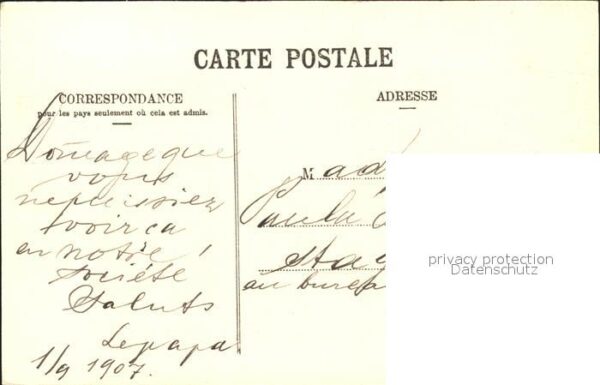 CARTE POSTALE
CORRESPONDANCE
pour les pays seulement où cela est admis.
ADRESSE
Domage que
vous
ne puissiez
voir ça
en notre !
société
Saluts
Le papa
1/9 1907.
M ad
Paula
Sta
au bure
privacy protection
Datenschutz